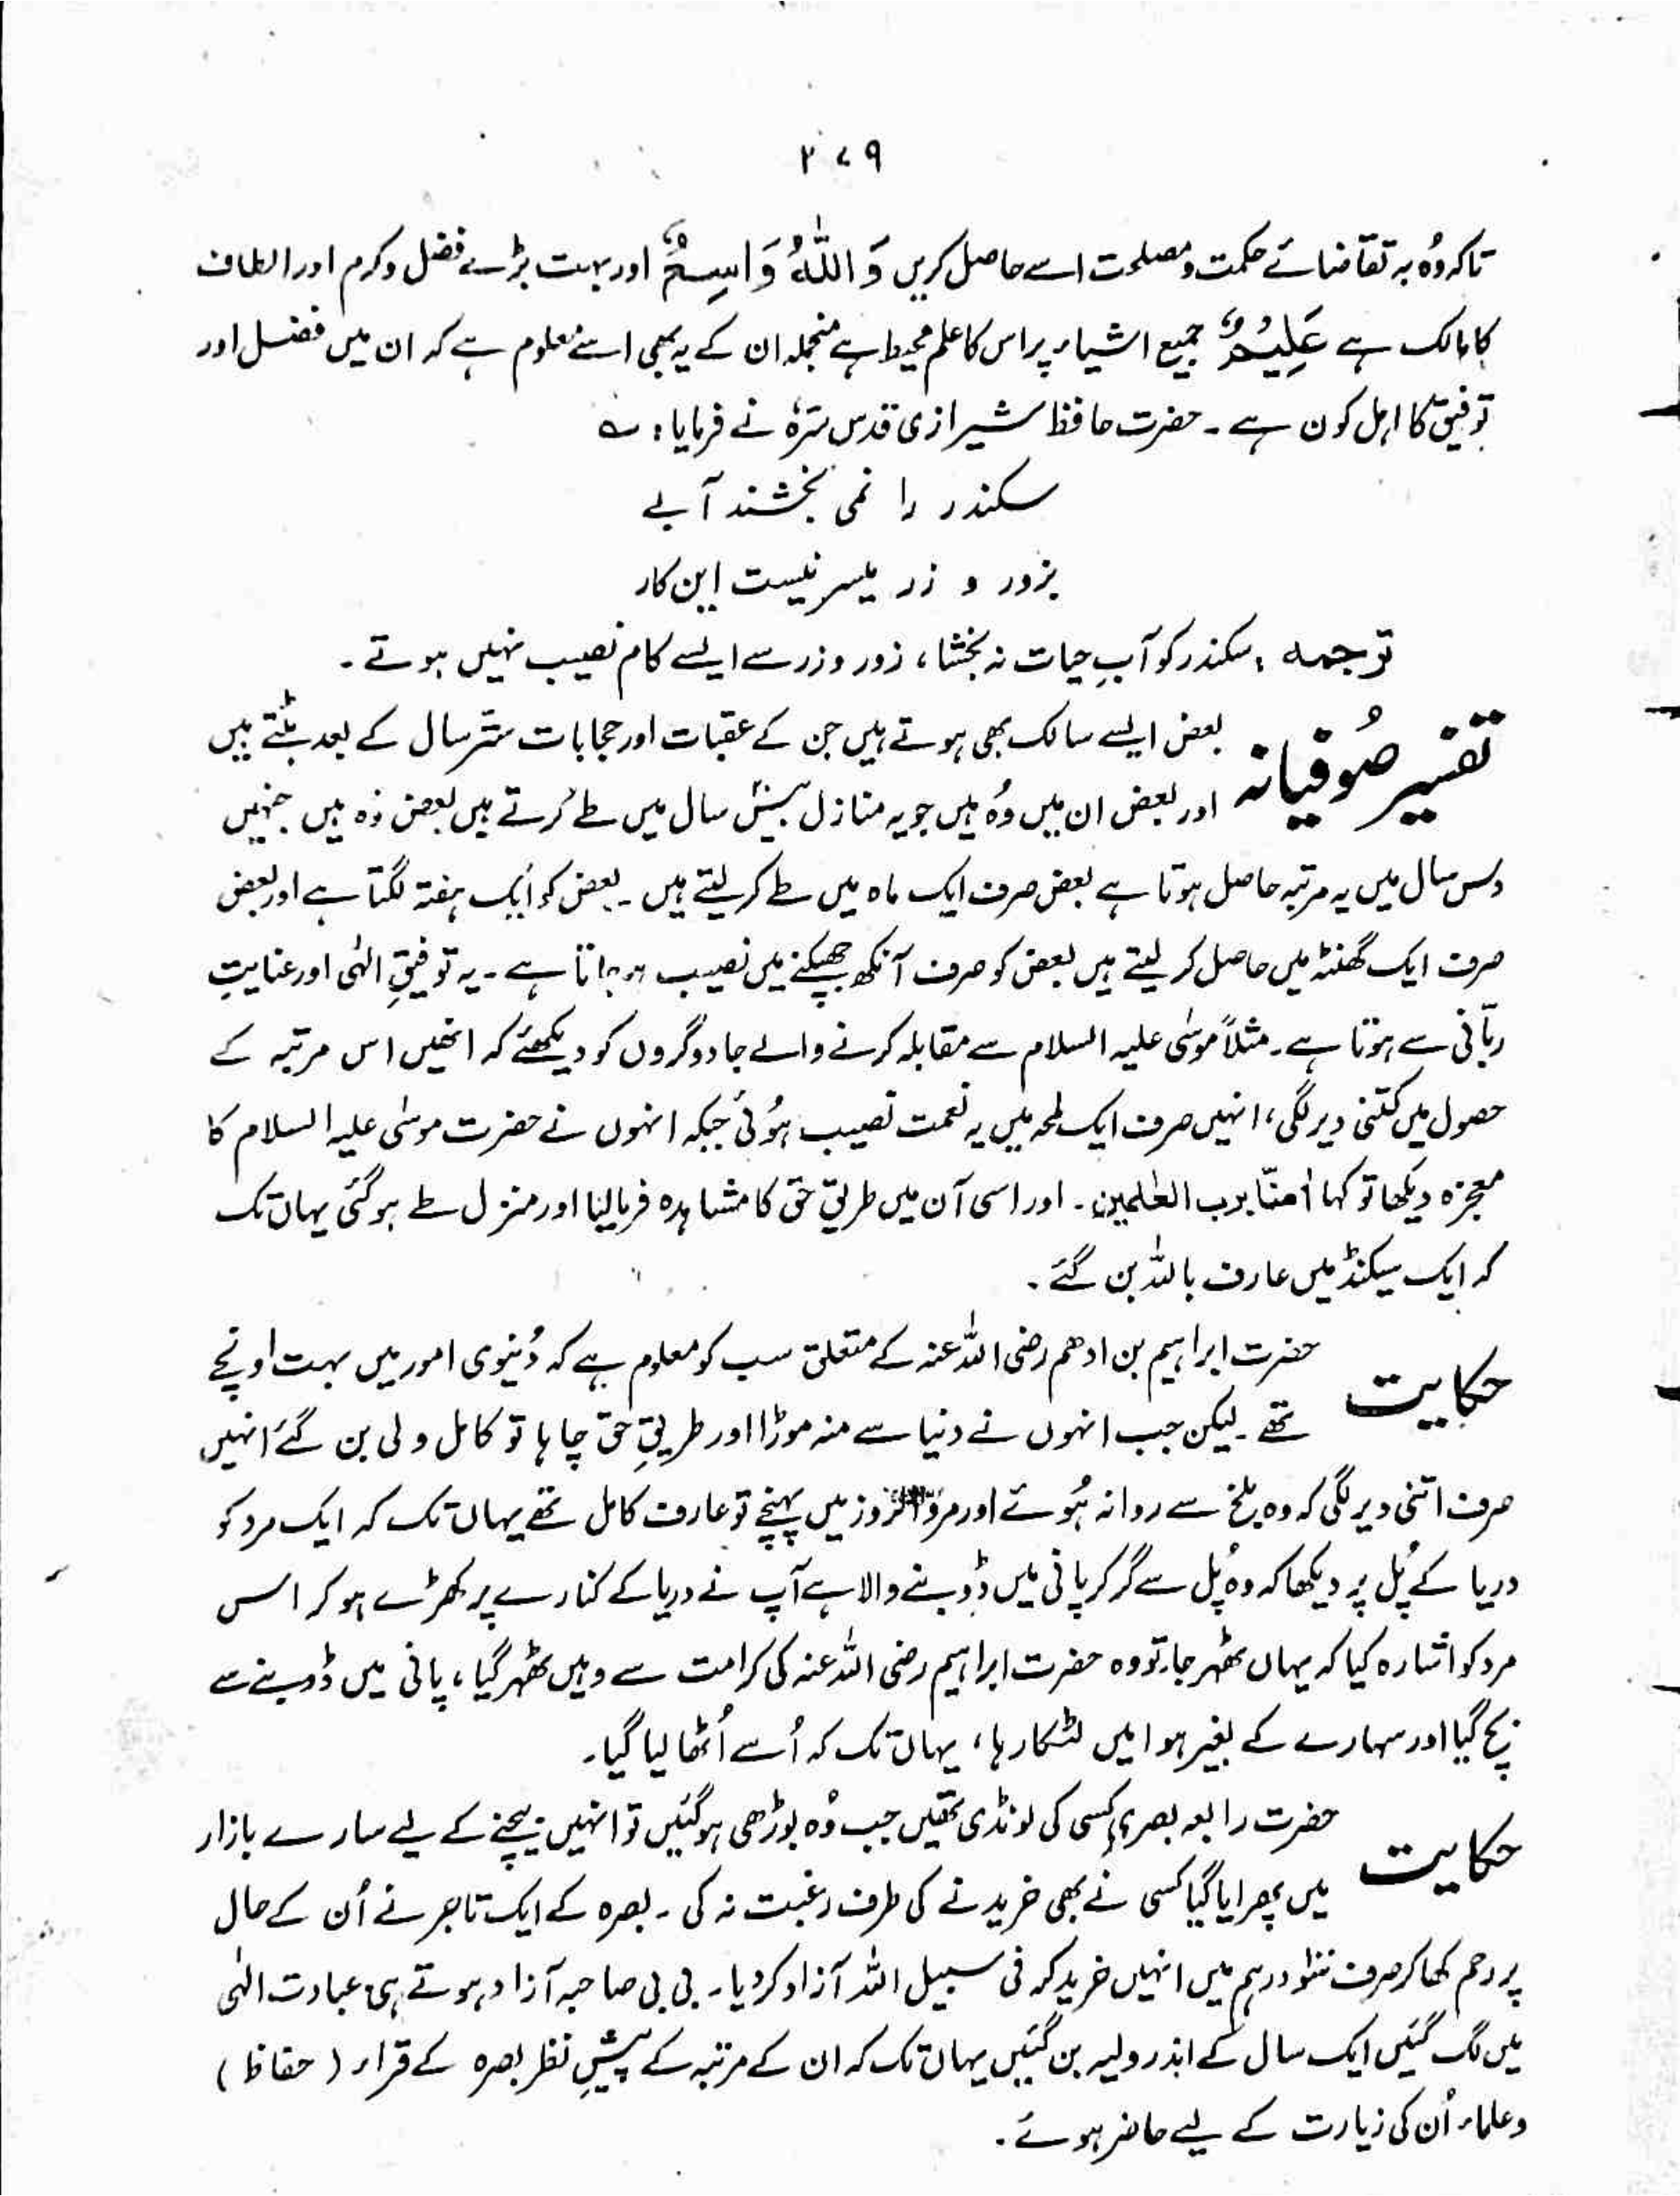 ۲۷۹
تاکہ وُہ بہ تقاضائے حکمت و مصلحت اسے حاصل کریں وَ اللّٰهُ وَاسِعٌ اور بہت بڑے فضل و کرم اور الطاف
کا مالک ہے عَلِیْمٌ جمیع اشیاء پر اس کا علم محیط ہے منجملہ ان کے یہ بھی اسے معلوم ہے کہ ان میں فضل اور
توفیق کا اہل کون ہے ۔ حضرت حافظ شیرازی قدس سرہٗ نے فرمایا : ؎
سکندر را نمی بخشند آبے
بزور و زر میسر نیست این کار
ترجمہ : سکندر کو آبِ حیات نہ بخشا ، زور و زر سے ایسے کام نصیب نہیں ہوتے ۔
تفسیر صُوفیانہ بعض ایسے سالک بھی ہوتے ہیں جن کے عقبات اور حجابات ستّر سال کے بعد ہٹتے ہیں
اور بعض ان میں وُہ ہیں جو یہ منازل بیس سال میں طے کرتے ہیں بعض وُہ ہیں جنہیں
دس سال میں یہ مرتبہ حاصل ہوتا ہے بعض صرف ایک ماہ میں طے کر لیتے ہیں ۔ بعض کو ایک ہفتہ لگتا ہے اور بعض
صرف ایک گھنٹہ میں حاصل کر لیتے ہیں بعض کو صرف آنکھ جھپکنے میں نصیب ہو جاتا ہے ۔ یہ توفیقِ الٰہی اور عنایتِ
ربّانی سے ہوتا ہے ۔ مثلاً موسٰی علیہ السلام سے مقابلہ کرنے والے جادوگروں کو دیکھئے کہ انھیں اس مرتبہ کے
حصول میں کتنی دیر لگی ، انہیں صرف ایک لمحہ میں یہ نعمت نصیب ہُوئی جبکہ انہوں نے حضرت موسٰی علیہ السلام کا
معجزہ دیکھا تو کہا اٰمنّا برب العٰلمین ۔ اور اسی آن میں طریقِ حق کا مشاہدہ فرمالیا اور منزل طے ہو گئی یہاں تک
کہ ایک سیکنڈ میں عارف باللہ بن گئے ۔
حکایت حضرت ابراہیم بن ادھم رضی اللہ عنہ کے متعلق سب کو معلوم ہے کہ دُنیوی امور میں بہت اونچے
تھے ۔ لیکن جب انہوں نے دنیا سے منہ موڑا اور طریقِ حق چاہا تو کامل ولی بن گئے انہیں
صرف اتنی دیر لگی کہ وہ بلخ سے روانہ ہُوئے اور میں پہنچے تو عارف کامل تھے یہاں تک کہ ایک مرد کو
دریا کے پُل پر دیکھا کہ وہ پُل سے گر کر پانی میں ڈوبنے والا ہے آپ نے دریا کے کنارے پر کھڑے ہو کر اس
مرد کو اشارہ کیا کہ یہاں ٹھہر جا ۔ تو وہ حضرت ابراہیم رضی اللہ عنہ کی کرامت سے وہیں ٹھہر گیا ، پانی میں ڈوبنے سے
بچ گیا اور سہارے کے بغیر ہوا میں لٹکا رہا ، یہاں تک کہ اُسے اُٹھا لیا گیا ۔
حکایت حضرت رابعہ بصری کسی کی لونڈی تھیں جب وُہ بوڑھی ہو گئیں تو انہیں بیچنے کے لیے سارے بازار
میں پھرایا گیا کسی نے بھی خریدنے کی طرف رغبت نہ کی ۔ بصرہ کے ایک تاجر نے اُن کے حال
پر رحم کھا کر صرف سَو درہم میں انہیں خرید کر فی سبیل اللہ آزاد کر دیا ۔ بی بی صاحبہ آزاد ہوتے ہی عبادت الٰہی
میں لگ گئیں ایک سال کے اندر ولیہ بن گئیں یہاں تک کہ ان کے مرتبہ کے پیشِ نظر بصرہ کے قراء ( حفاظ )
و علماء اُن کی زیارت کے لیے حاضر ہوئے ۔